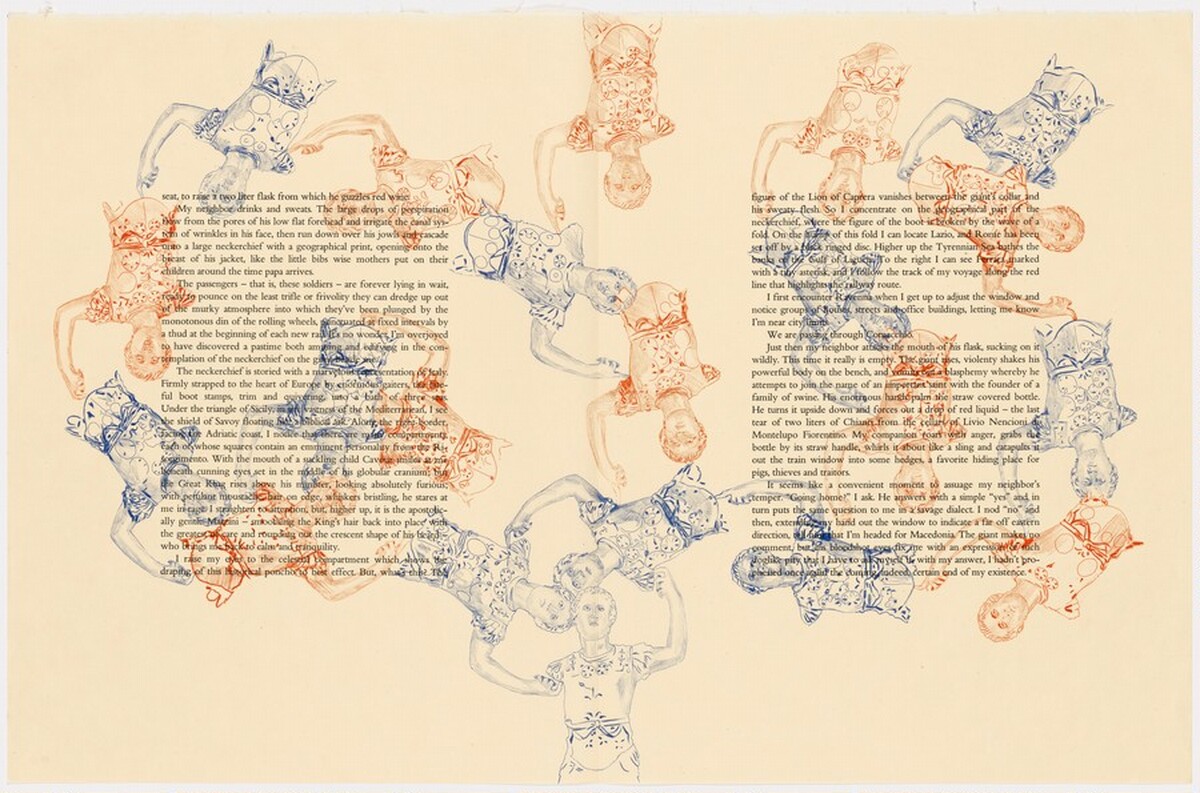 seat, to raise a two liter flask from which he guzzles red wine.
My neighbor drinks and sweats. The large drops of perspiration
flow from the pores of his low flat forehead and irrigate the canal sys-
tem of wrinkles in his face, then run down over his jowls and cascade
onto a large neckerchief with a geographical print, opening onto the
breast of his jacket, like the little bibs wise mothers put on their
children around the time papa arrives.
The passengers – that is, these soldiers – are forever lying in wait,
ready to pounce on the least trifle or frivolity they can dredge up out
of the murky atmosphere into which they've been plunged by the
monotonous din of the rolling wheels, punctuated at fixed intervals by
a thud at the beginning of each new rail. It's no wonder I'm overjoyed
to have discovered a pastime both amusing and edifying in the con-
templation of the neckerchief on the greedy
The neckerchief is storied with a marvelous representation of Italy.
Firmly strapped to the heart of Europe by enormous gaiters, the
ful boot stamps, trim and quivering, into a bath of three seas.
Under the triangle of Sicily, in the vastness of the Mediterranean, I see
the shield of Savoy floating like a biblical ark. Along the right border,
facing the Adriatic coast, I notice that there are many compartments,
each of whose squares contain an eminent personality from the Ri-
sorgimento. With the mouth of a suckling child Cavour smiles at me
beneath cunning eyes set in the middle of his globular cranium; but
the Great King rises above his minister, looking absolutely furious;
with petulant moustache, hair on edge, whiskers bristling, he stares at
me in I straighten to attention, but, higher up, it is the apostolic-
ally gentle Mazzini – smoothing the King's hair back into place with
the greatest care and rounding out the crescent shape of his beard –
who brings me back to calm and tranquility.
I raise my eyes to the celestial compartment which shows the
draping of this historical poncho to best effect. But, what's this? The
figure of the Lion of Caprera vanishes between the giant's collar and
his sweaty flesh. So I concentrate on the geographical part of the
neckerchief, where the figure of the boot is broken by the wave of a
fold. On the of this fold I can locate Lazio, and Rome has been
set off by a black ringed disc. Higher up the Tyrennian Sea bathes the
banks of the Gulf of Liguria. To the right I can see Ferrara marked
with a tiny asterisk, and I follow the track of my voyage along the red
line that highlights the railway route.
I first encounter Ravenna when I get up to adjust the window and
notice groups of houses, streets and office buildings, letting me know
I'm near city limits.
We are passing through Comacchio.
Just then my neighbor attacks the mouth of his flask, sucking on it
wildly. This time it really is empty. The giant rises, violenty shakes his
powerful body on the bench, and vomits out a blasphemy whereby he
attempts to join the name of an important saint with the founder of a
family of swine. His enormous hand palms the straw covered bottle.
He turns it upside down and forces out a drop of red liquid – the last
tear of two liters of Chianti from the cellars of Livio Nencioni,
Montelupo Fiorentino. My companion roars with anger, grabs the
bottle by its straw handle, whirls it about like a sling and catapults it
out the train window into some hedges, a favorite hiding place for
pigs, thieves and traitors.
It seems like a convenient moment to assuage my neighbor's
temper. "Going home?" I ask. He answers with a simple "yes" and in
turn puts the same question to me in a savage dialect. I nod "no" and
then, extending my hand out the window to indicate a far off eastern
direction, that I'm headed for Macedonia. The giant makes no
comment, but his bloodshot eyes fix me with an expression of such
doglike pity that I have to ask myself if, with my answer, I hadn't pro-
phecied once again the coming, indeed certain end of my existence.